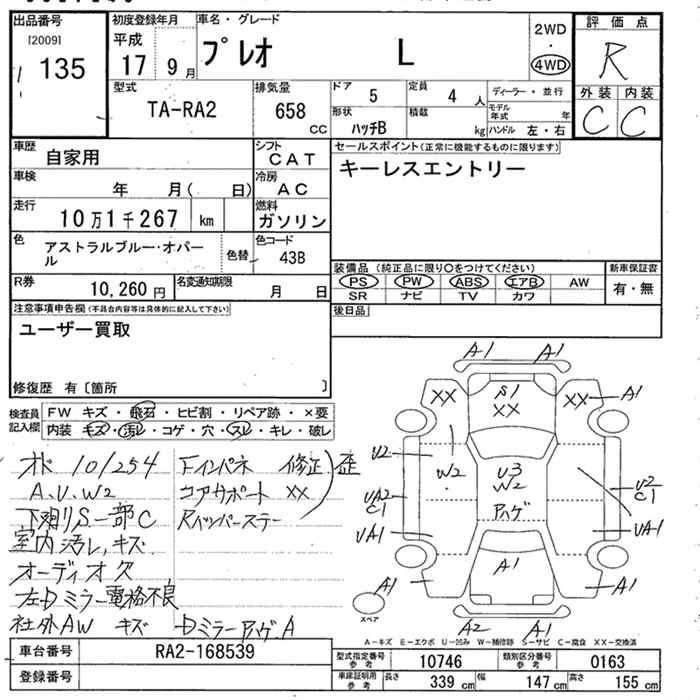 出品番号
[2009]
135
初度登録年月
平成
17 9月
車名・グレード
プレオ L
2WD
・
4WD
評価点
R
外装 内装
C C
型式
TA-RA2
排気量
658
CC
ドア
5
定員
4 人
形状
ハッチB
積載
kg
ディーラー・並行
モデル年式 年
ハンドル 左・右
車歴
自家用
シフト
CAT
車検
年 月( 日)
冷房
AC
走行
10万1千267 km
燃料
ガソリン
色
アストラルブルー・オパール
色替
色コード
43B
R券
10,260円
名変通知期限
月 日
セールスポイント(正常に機能するものに限ります)
キーレスエントリー
装備品(純正品に限り○をつけてください)
PS PW ABS エアB AW
SR ナビ TV カワ
新車保証書
有・無
後日品
注意事項申告欄(不具合内容等は具体的に記入して下さい)
ユーザー買取
修復歴 有〔箇所 〕
検査員記入欄
FW キズ・飛石・ヒビ割・リペア跡・×要
内装 キズ・汚レ・コゲ・穴・スレ・キレ・破レ
オド 101254
A、U、W2
下廻りS一部C
室内汚レ、キズ
オーディオ欠
左Dミラー電格不良
社外AW キズ
Fインパネ 修正 歪
コアサポート XX
Dミラーハゲ A
A1 A1
XX S1 XX XX A1
U2 W2 U3 W2
UA2 C1
U2 C1
UA1 UA1
A1 A1 A1
スペア
A2 A1
A-キズ E-エクボ U-凹み W-補修跡 S-サビ C-腐食 XX-交換済
車台番号
RA2-168539
登録番号
型式指定番号
参考
10746
類別区分番号
参考
0163
車庫証明用
参考
長さ 339 cm
幅 147 cm
高さ 155 cm